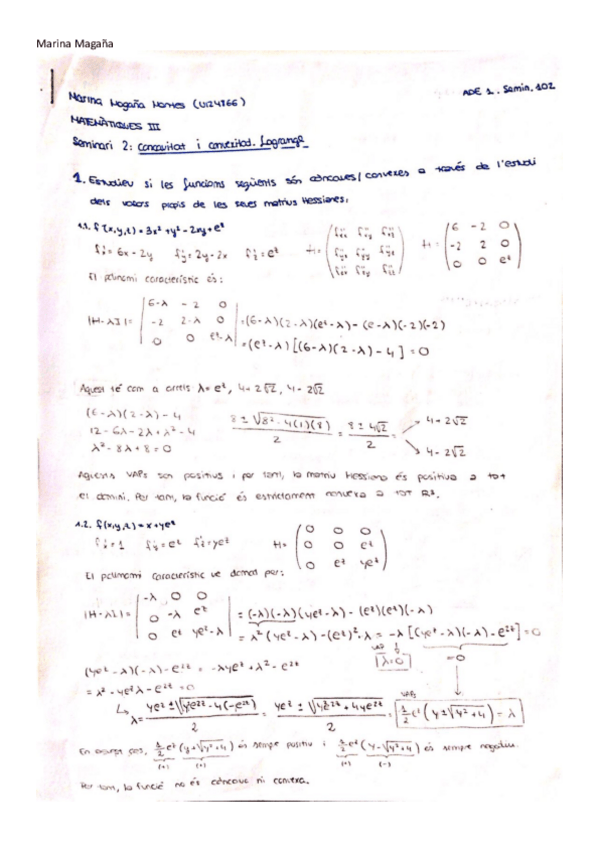 Marina Magaña
Marina Magaña Mornes (U124766) ADE 1. Semin. 102
MATEMÀTIQUES III
Seminari 2: Concavitat i convexitat. Lagrange
1. Estudieu si les funcions següents són còncaves/convexes a través de l'estudi
dels valors propis de les seves matrius Hessianes:
1.1. f(x,y,z) = 3x² + y² - 2xy + e^z
f'x = 6x - 2y f'y = 2y - 2x f'z = e^z H = ( f''xx f''xy f''xz / f''yx f''yy f''yz / f''zx f''zy f''zz ) H = ( 6 -2 0 / -2 2 0 / 0 0 e^z )
El polinomi característic és:
|H-λI| = | 6-λ -2 0 / -2 2-λ 0 / 0 0 e^z-λ | = (6-λ)(2-λ)(e^z-λ) - (e^z-λ)(-2)(-2)
= (e^z-λ)[(6-λ)(2-λ) - 4] = 0
Aquest té com a arrels λ = e^z, 4+2√2, 4-2√2
(6-λ)(2-λ) - 4
12 - 6λ - 2λ + λ² - 4
λ² - 8λ + 8 = 0
8 ± √(8² - 4(1)(8)) / 2 = 8 ± 4√2 / 2 = 4+2√2
4-2√2
Aquests VAPs són positius i per tant, la matriu Hessiana és positiva a tot
el domini. Per tant, la funció és estrictament convexa a TOT R³.
1.2. f(x,y,z) = x + ye^z
f'x = 1 f'y = e^z f'z = ye^z H = ( 0 0 0 / 0 0 e^z / 0 e^z ye^z )
El polinomi característic ve donat per:
|H-λI| = | -λ 0 0 / 0 -λ e^z / 0 e^z ye^z-λ | = (-λ)(-λ)(ye^z-λ) - (e^z)(e^z)(-λ)
= λ²(ye^z-λ) - (e^z)²·λ = -λ[(ye^z-λ)(-λ) - e^2z] = 0
VAP λ=0 =0
(ye^z-λ)(-λ) - e^2z = -λye^z + λ² - e^2z
= λ² - ye^zλ - e^2z = 0
λ = ye^z ± √(y²e^2z - 4(-e^2z)) / 2 = ye^z ± √(y²e^2z + 4e^2z) / 2 = VAPs 1/2 e^z (y ± √(y²+4)) = λ
En aquest cas, 1/2 e^z (y+√(y²+4)) és sempre positiu i 1/2 e^z (y-√(y²+4)) és sempre negatiu.
(+) (+) (+) (-)
Per tant, la funció no és còncava ni convexa.